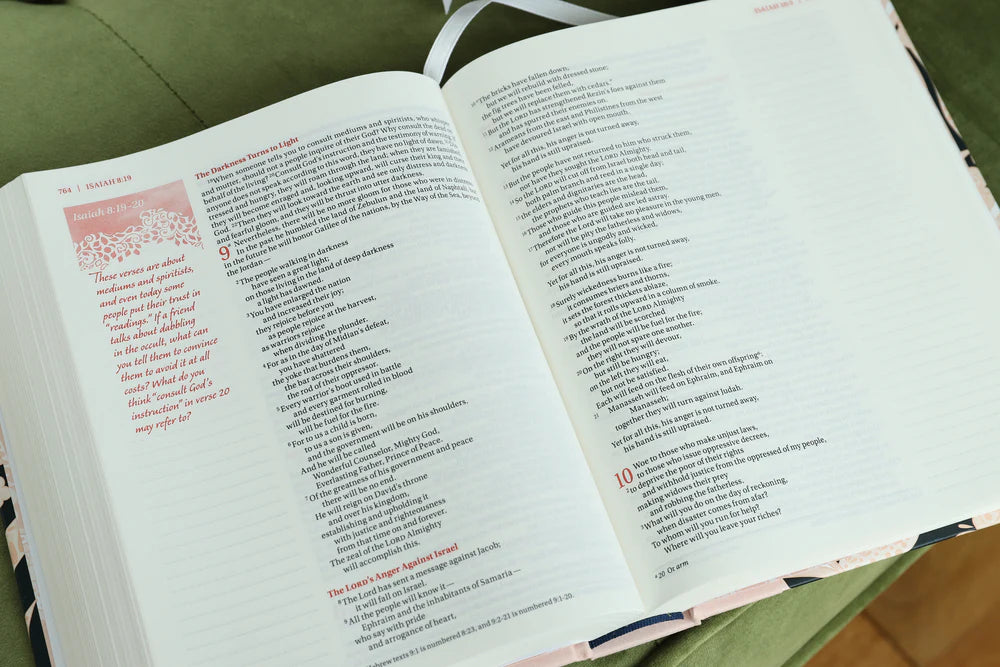 764 | ISAIAH 8:19
Isaiah 8:19-20
These verses are about
mediums and spiritists,
and even today some
people put their trust in
"readings." If a friend
talks about dabbling
in the occult, what can
you tell them to convince
them to avoid it at all
costs? What do you
think "consult God's
instruction" in verse 20
may refer to?
The Darkness Turns to Light
19 When someone tells you to consult mediums and spiritists, who whisper
and mutter, should not a people inquire of their God? Why consult the dead on
behalf of the living? 20 Consult God's instruction and the testimony of warning. If
anyone does not speak according to this word, they have no light of dawn. 21
tressed and hungry, they will roam through the land; when they are famished,
they will become enraged and, looking upward, will curse their king and their
God. 22 Then they will look toward the earth and see only distress and darkness
and fearful gloom, and they will be thrust into utter darkness.
9 Nevertheless, there will be no more gloom for those who were in distress.
In the past he humbled the land of Zebulun and the land of Naphtali, but
in the future he will honor Galilee of the nations, by the Way of the Sea, beyond
the Jordan—
2 The people walking in darkness
have seen a great light;
on those living in the land of deep darkness
a light has dawned.
3 You have enlarged the nation
and increased their joy;
they rejoice before you
as people rejoice at the harvest,
as warriors rejoice
when dividing the plunder.
4 For as in the day of Midian's defeat,
you have shattered
the yoke that burdens them,
the bar across their shoulders,
the rod of their oppressor.
5 Every warrior's boot used in battle
and every garment rolled in blood
will be destined for burning,
will be fuel for the fire.
6 For to us a child is born,
to us a son is given,
and the government will be on his shoulders.
And he will be called
Wonderful Counselor, Mighty God,
Everlasting Father, Prince of Peace.
7 Of the greatness of his government and peace
there will be no end.
He will reign on David's throne
and over his kingdom,
establishing and upholding it
with justice and righteousness
from that time on and forever.
The zeal of the LORD Almighty
will accomplish this.
The LORD's Anger Against Israel
8 The Lord has sent a message against Jacob;
it will fall on Israel.
9 All the people will know it—
Ephraim and the inhabitants of Samaria—
who say with pride
and arrogance of heart,
Hebrew texts 9:1 is numbered 8:23, and 9:2-21 is numbered 9:1-20.
ISAIAH
10 "The bricks have fallen down,
but we will rebuild with dressed stone;
the fig trees have been felled,
but we will replace them with cedars."
11 But the LORD has strengthened Rezin's foes against them
and has spurred their enemies on.
12 Arameans from the east and Philistines from the west
have devoured Israel with open mouth.
Yet for all this, his anger is not turned away,
his hand is still upraised.
13 But the people have not returned to him who struck them,
nor have they sought the LORD Almighty.
14 So the LORD will cut off from Israel both head and tail,
both palm branch and reed in a single day;
15 the elders and dignitaries are the head,
the prophets who teach lies are the tail.
16 Those who guide this people mislead them,
and those who are guided are led astray.
17 Therefore the Lord will take no pleasure in the young men,
nor will he pity the fatherless and widows,
for everyone is ungodly and wicked,
every mouth speaks folly.
Yet for all this, his anger is not turned away,
his hand is still upraised.
18 Surely wickedness burns like a fire;
it consumes briers and thorns,
it sets the forest thickets ablaze,
so that it rolls upward in a column of smoke.
19 By the wrath of the LORD Almighty
the land will be scorched
and the people will be fuel for the fire;
they will not spare one another.
20 On the right they will devour,
but still be hungry;
on the left they will eat,
but not be satisfied.
Each will feed on the flesh of their own offspring a:
21 Manasseh will feed on Ephraim, and Ephraim on
Manasseh;
together they will turn against Judah.
Yet for all this, his anger is not turned away,
his hand is still upraised.
10 Woe to those who make unjust laws,
to those who issue oppressive decrees,
2 to deprive the poor of their rights
and withhold justice from the oppressed of my people,
making widows their prey
and robbing the fatherless.
3 What will you do on the day of reckoning,
when disaster comes from afar?
To whom will you run for help?
Where will you leave your riches?
a 20 Or arm